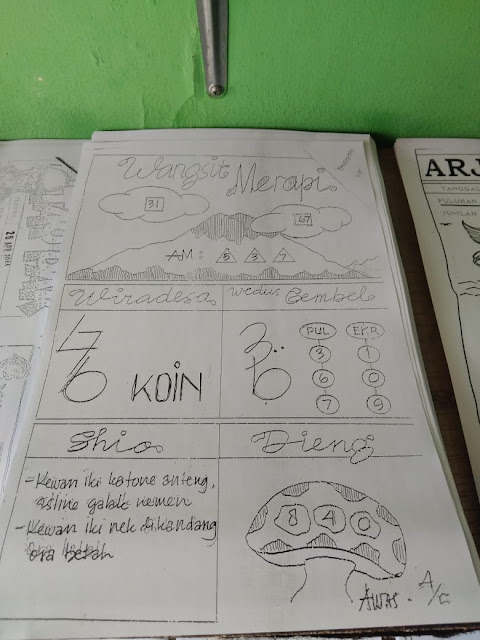 Wangsit Merapi
31
67
AM : 5 3 7
Wiradesa
KOIN
Wedus Gembel
PUL EKR
3 1
6 0
7 9
Shio
-Kewan iki katone anteng,
asline galak nemen
-Kewan iki nek dikandang
ora betah
Dieng
8 4 0
AWAS - A/C
ARJ
TANGGAL
PULUHAN
JUMLAH